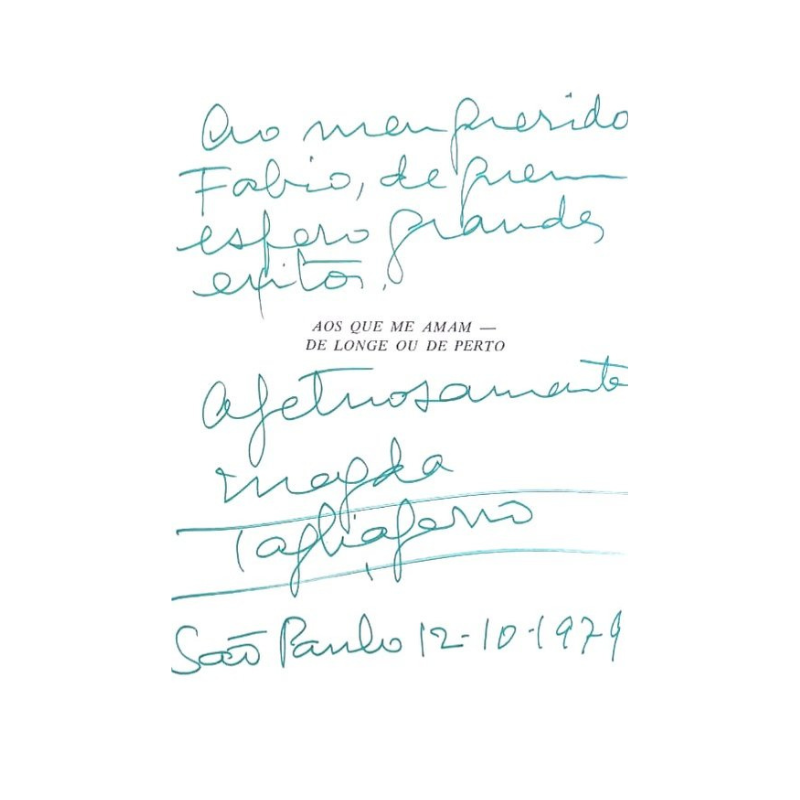 Ao meu querido
Fabio, de quem
espero grandes
exitos.
AOS QUE ME AMAM —
DE LONGE OU DE PERTO
afetuosamente
Magda
Tagliaferro
São Paulo 12-10-1979